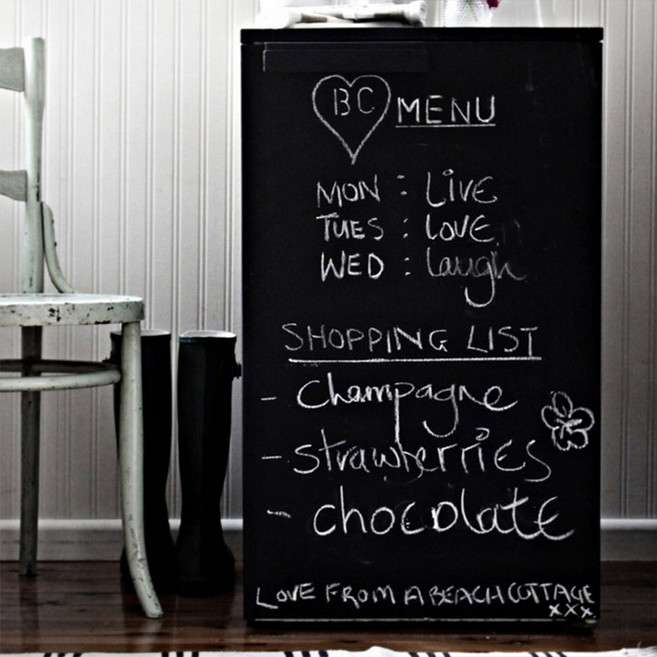 BC MENU
MON : LIVE
TUES : LOVE
WED : laugh
SHOPPING LIST
- Champagne
- strawberries
- chocolate
LOVE FROM A BEACH COTTAGE
xxx